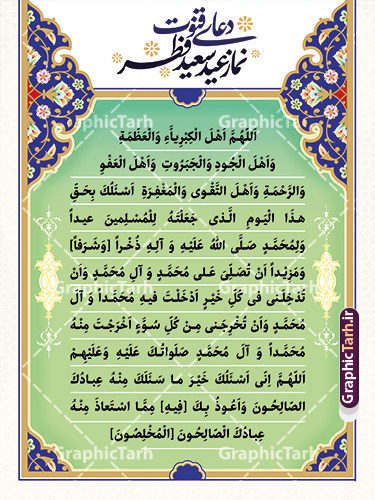 دعای قنوت
نماز عید سعید فطر
اَللّهُمَّ اَهْلَ الْكِبْرِياءِ وَالْعَظَمَةِ
وَاَهْلَ الْجُودِ وَالْجَبَرُوتِ وَاَهْلَ الْعَفْوِ
وَالرَّحْمَةِ وَاَهْلَ التَّقْوى وَالْمَغْفِرَةِ اَسْئَلُكَ بِحَقِّ
هذَا الْيَومِ الَّذى جَعَلْتَهُ لِلْمُسْلِمينَ عيداً
وَلِمُحَمَّدٍ صَلَّى اللهُ عَلَيْهِ وَ آلِهِ ذُخْراً [وَشَرَفاً]
وَمَزيْداً اَنْ تُصَلِّىَ عَلى مُحَمَّدٍ وَ آلِ مُحَمَّدٍ وَاَنْ
تُدْخِلَنى فى كُلِّ خَيْرٍ اَدْخَلْتَ فيهِ مُحَمَّداً وَ آلَ
مُحَمَّدٍ وَاَنْ تُخْرِجَنى مِنْ كُلِّ سُوَّءٍ اَخْرَجْتَ مِنْهُ
مُحَمَّداً وَ آلَ مُحَمَّدٍ صَلَواتُكَ عَلَيْهِ وَعَلَيْهِمْ
اَللّهُمَّ اِنّى اَسْئَلُكَ خَيْرَ ما سَئَلَكَ مِنْهُ عِبادُكَ
الصّالِحُونَ وَاَعُوذُ بِكَ [فيهِ] مِمَّا اسْتَعاذَ مِنْهُ
عِبادُكَ الْصّالِحُونَ [الْمُخْلِصُونَ]
GraphicTarh.ir
GraphicTarh
GraphicTarh
GraphicTarh
GraphicTarh
GraphicTarh
GraphicTarh
GraphicTarh
GraphicTarh